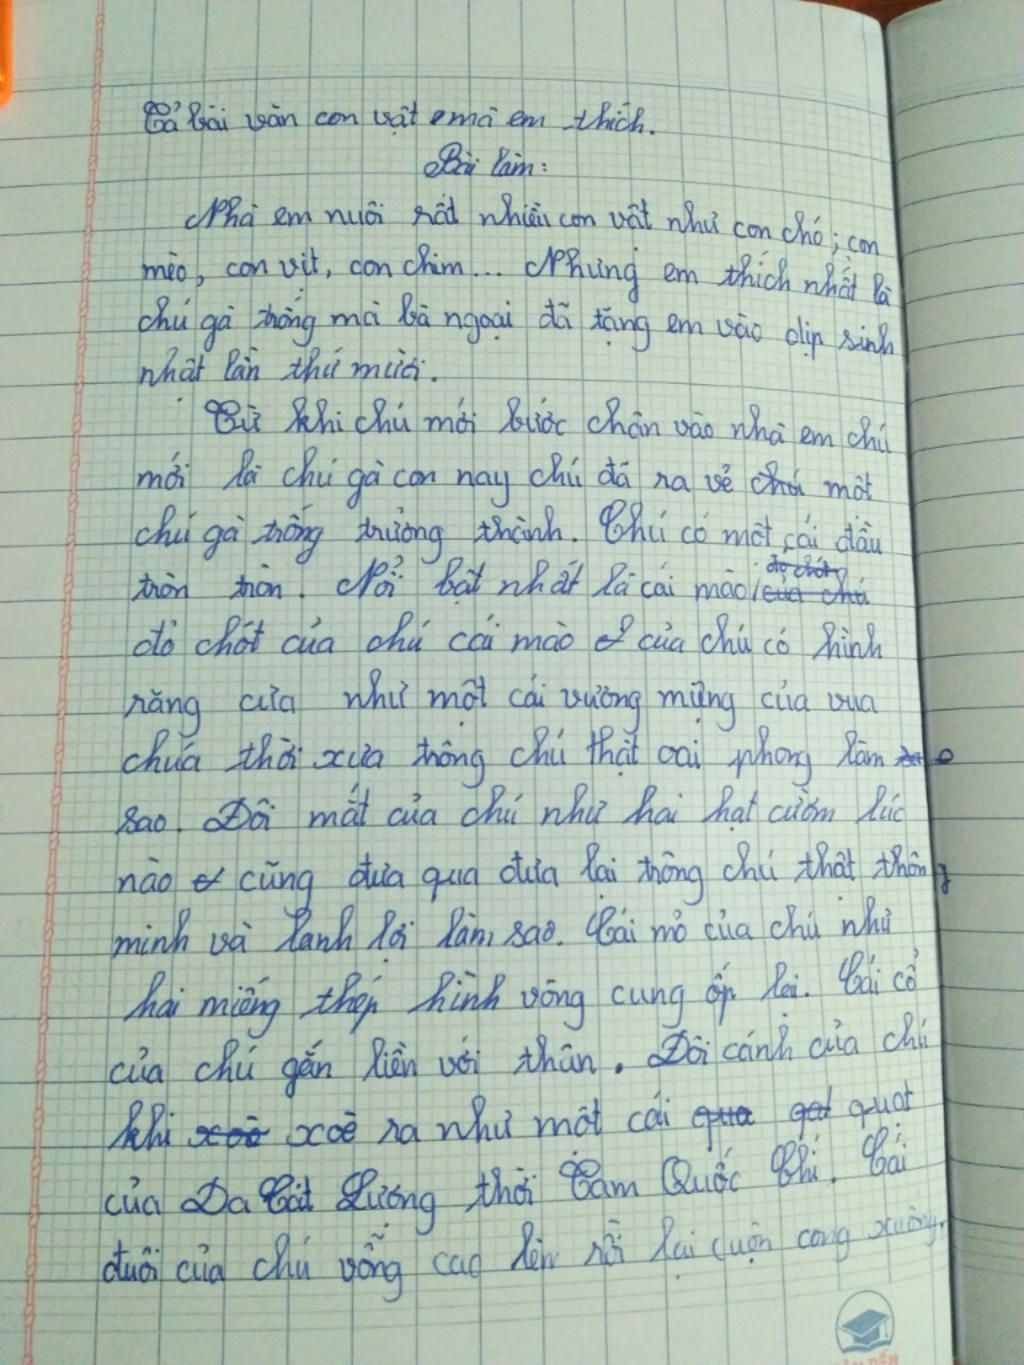 Tả bài văn con vật mà em thích.
Bài làm:
Nhà em nuôi rất nhiều con vật như con chó; con
mèo, con vịt, con chim... Nhưng em thích nhất là
chú gà trống mà bà ngoại đã tặng em vào dịp sinh
nhật lần thứ mười.
Từ khi chú mới bước chân vào nhà em chú
mới là chú gà con nay chú đã ra vẻ chú một
chú gà trống trưởng thành. Chú có một cái đầu
tròn tròn. Nổi bật nhất là cái mào đỏ chót của chú
đỏ chót của chú cái mào của chú có hình
răng cưa như một cái vương miện của vua
chúa thời xưa trông chú thật oai phong làm
sao. Đôi mắt của chú như hai hạt cườm lúc
nào cũng đưa qua đưa lại trông chú thât thông
minh và lanh lợi làm sao. Cái mỏ của chú như
hai miếng thép hình vòng cung ốp lại. Cái cổ
của chú gắn liền với thân. Đôi cánh của chú
khi xoè ra như một cái qua qat quạt
của Da Cát Lượng thời Tam Quốc Chí. Cái
đuôi của chú vồng cao lên rồi lại cuộn cong xuông.